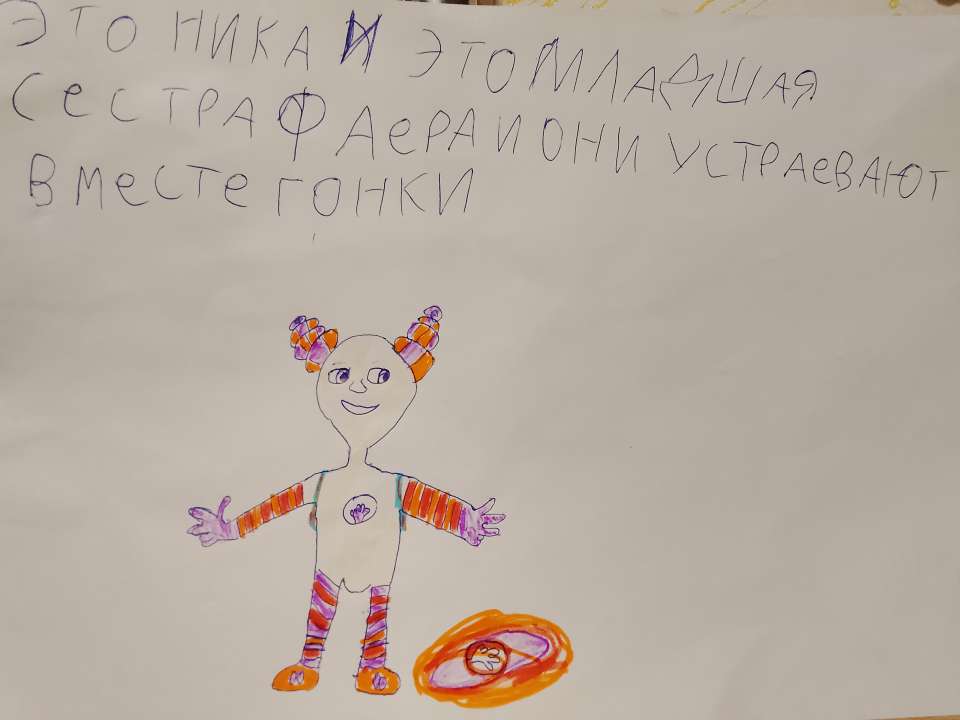 ЭТО НИКА И ЭТО МЛАДШАЯ
СеСТРА ФАеРА И ОНИ УСТРАеВАЮТ
ВМеСТе ГОНКИ